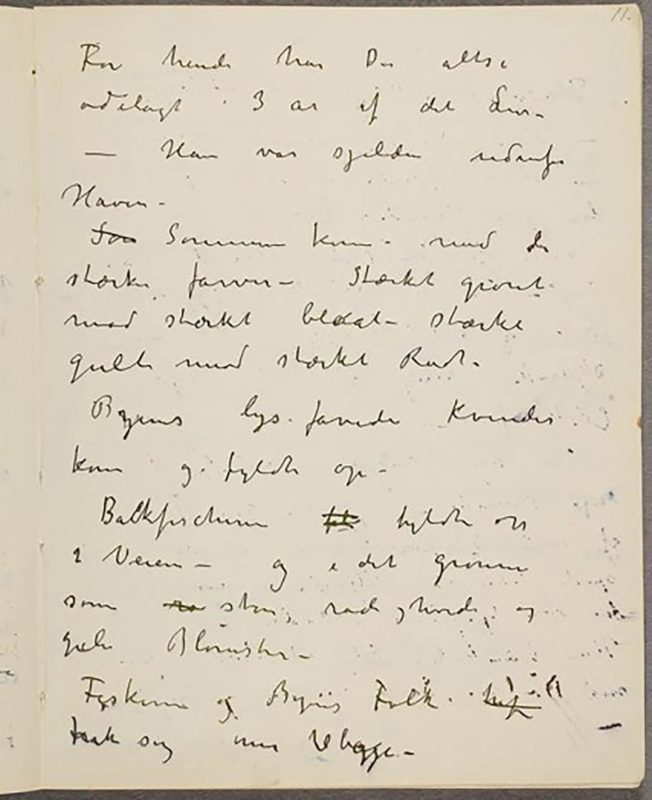 11.
For hende har De altså
ødelagt 3 år af det Liv –
— Han var sjelden udenfor
Haven –
Sommeren kom – med de
stærke farver – Stærkt grønt
mod stærkt blåat – stærkt
gult mod stærkt Rødt –
Byens lys farvede Kvinder
kom og fyldte op –
fyldte op
i Veien – og i det grønne
som store, røde, hvide, og
gule Blomster –
og Byens Folk
trak sig mer tilbage –